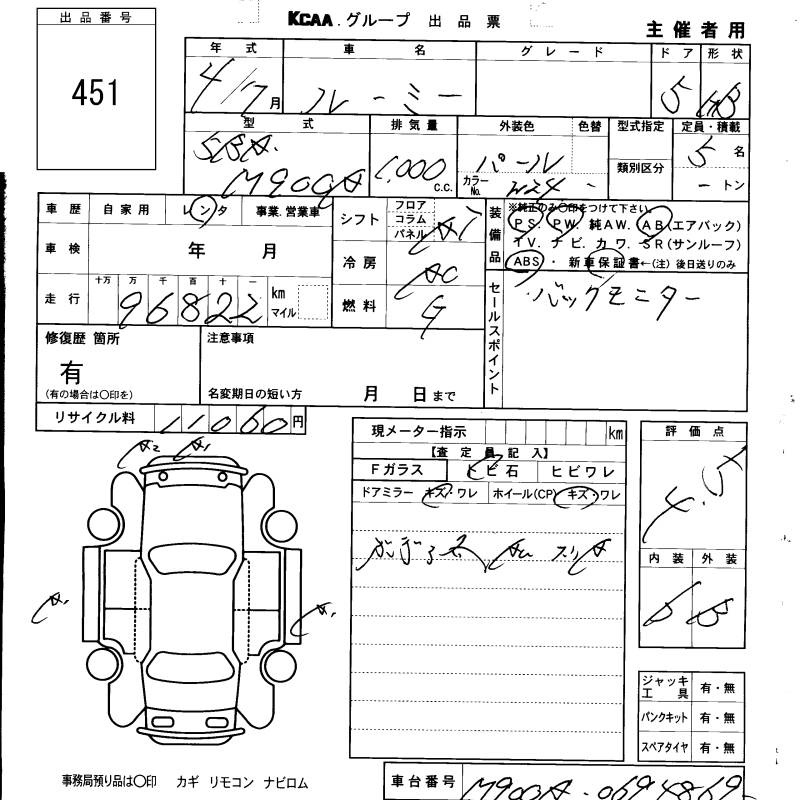 出品番号
451
KCAA.グループ 出品票
主催者用
年式 車名 グレード ドア 形状
4/7月 ルーミー 5 HB
型式 排気量 外装色 色替 型式指定 定員・積載
5BA-M900A 1,000c.c. パール 5名
類別区分
カラーNo. W24 - -トン
車歴 自家用 レンタ 事業.営業車
シフト フロア コラム パネル
装備品
※純正のみ○印をつけて下さい。
PS. PW. 純AW. AB(エアバック)
TV. ナビ. カワ. SR(サンルーフ)
ABS・ 新車保証書←(注)後日送りのみ
車検 年 月
冷房 AC
走行 十万 万 千 百 十 一
96822 km マイル
燃料 G
セールスポイント
バックモニター
修復歴 箇所
有
(有の場合は○印を)
注意事項
名変期日の短い方 月 日まで
リサイクル料 11060円
現メーター指示 km
【査定員記入】
Fガラス トビ石 ヒビワレ
ドアミラー キズ・ワレ ホイール(CP) キズ・ワレ
評価点
A2 A1
A1
A1
内装 外装
B B
ジャッキ工具 有・無
パンクキット 有・無
スペアタイヤ 有・無
事務局預り品は○印 カギ リモコン ナビロム
車台番号 M900A-069